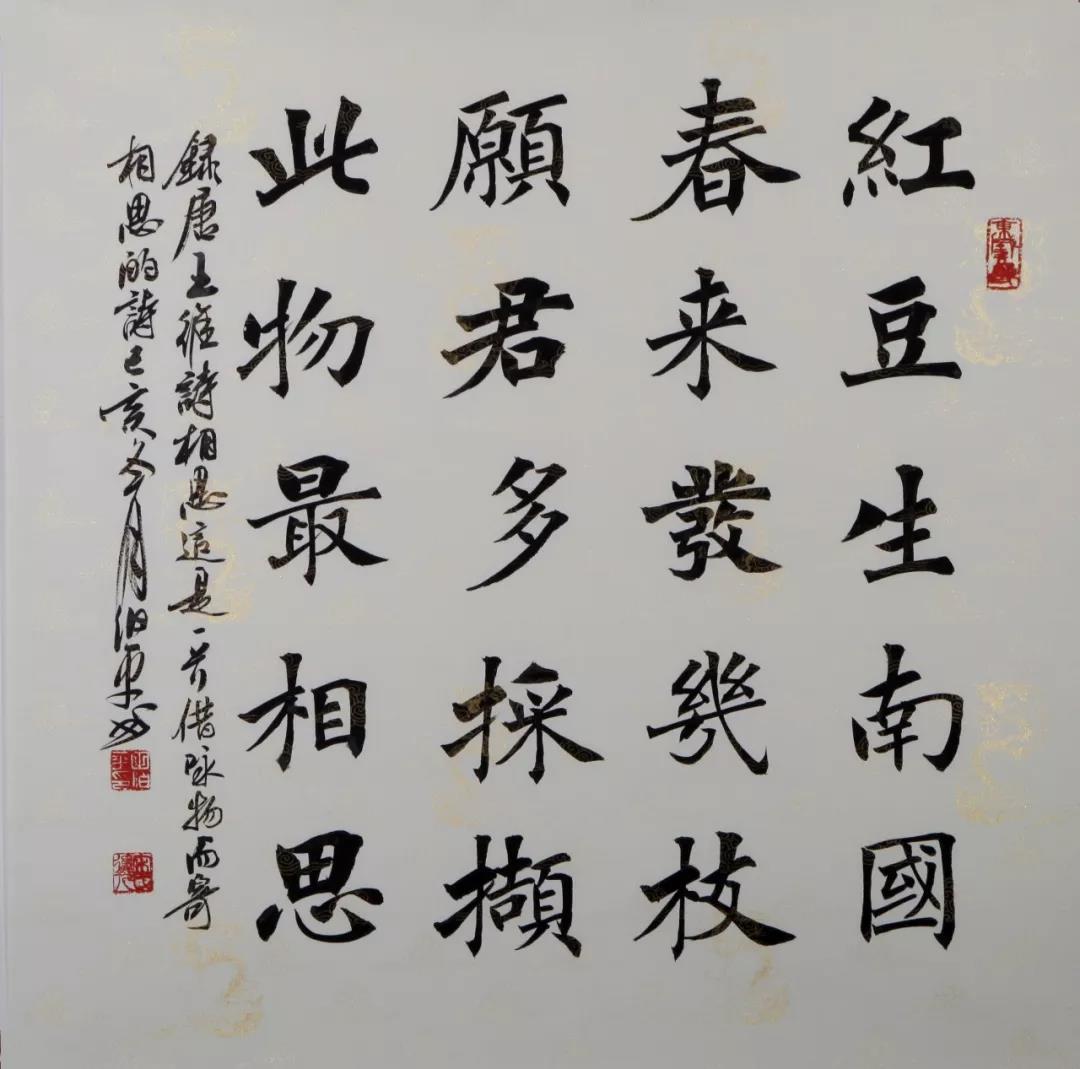 紅豆生南國
春来發幾枝
願君多採擷
此物最相思
録唐王維詩相思這是一首借咏物而寄
相思的詩己亥冬月伯平書